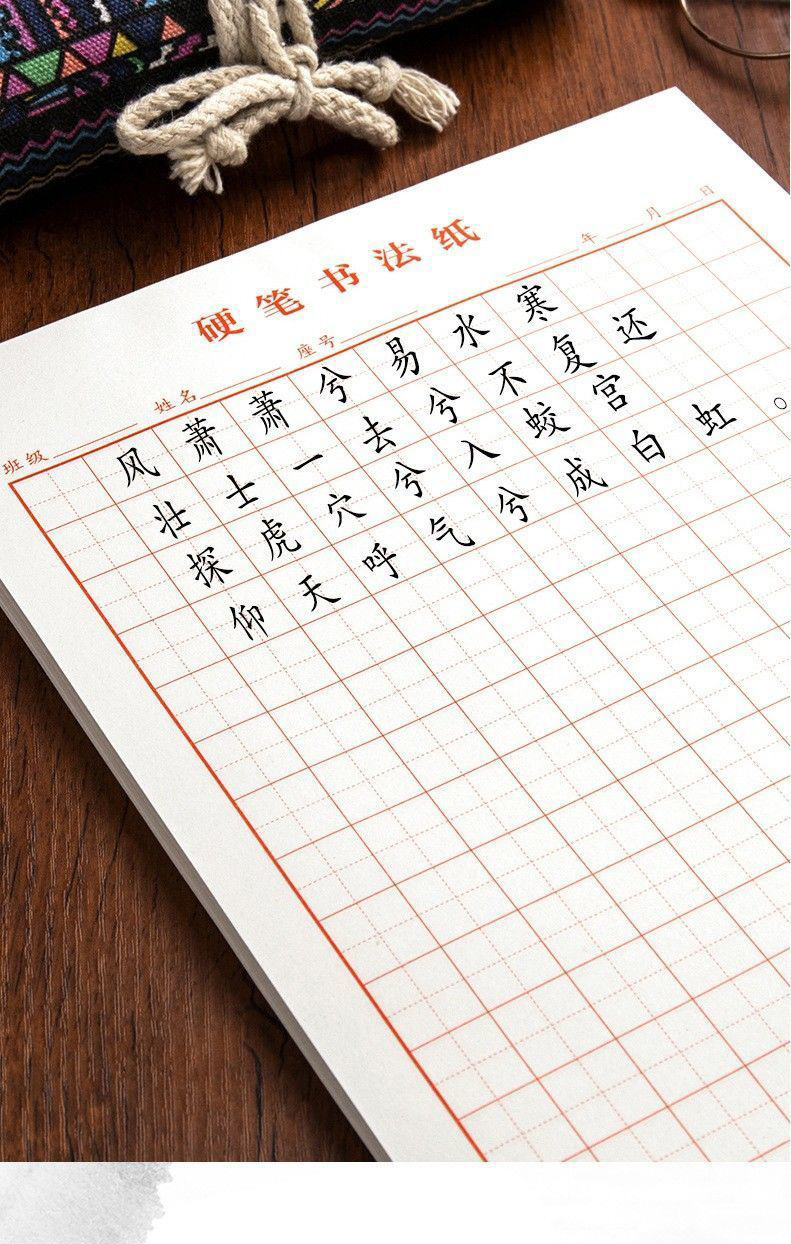 硬笔书法纸
班级 姓名 座号 年 月 日
风萧萧兮易水寒
壮士一去兮不复还
探虎穴兮入蛟宫
仰天呼气兮成白虹。